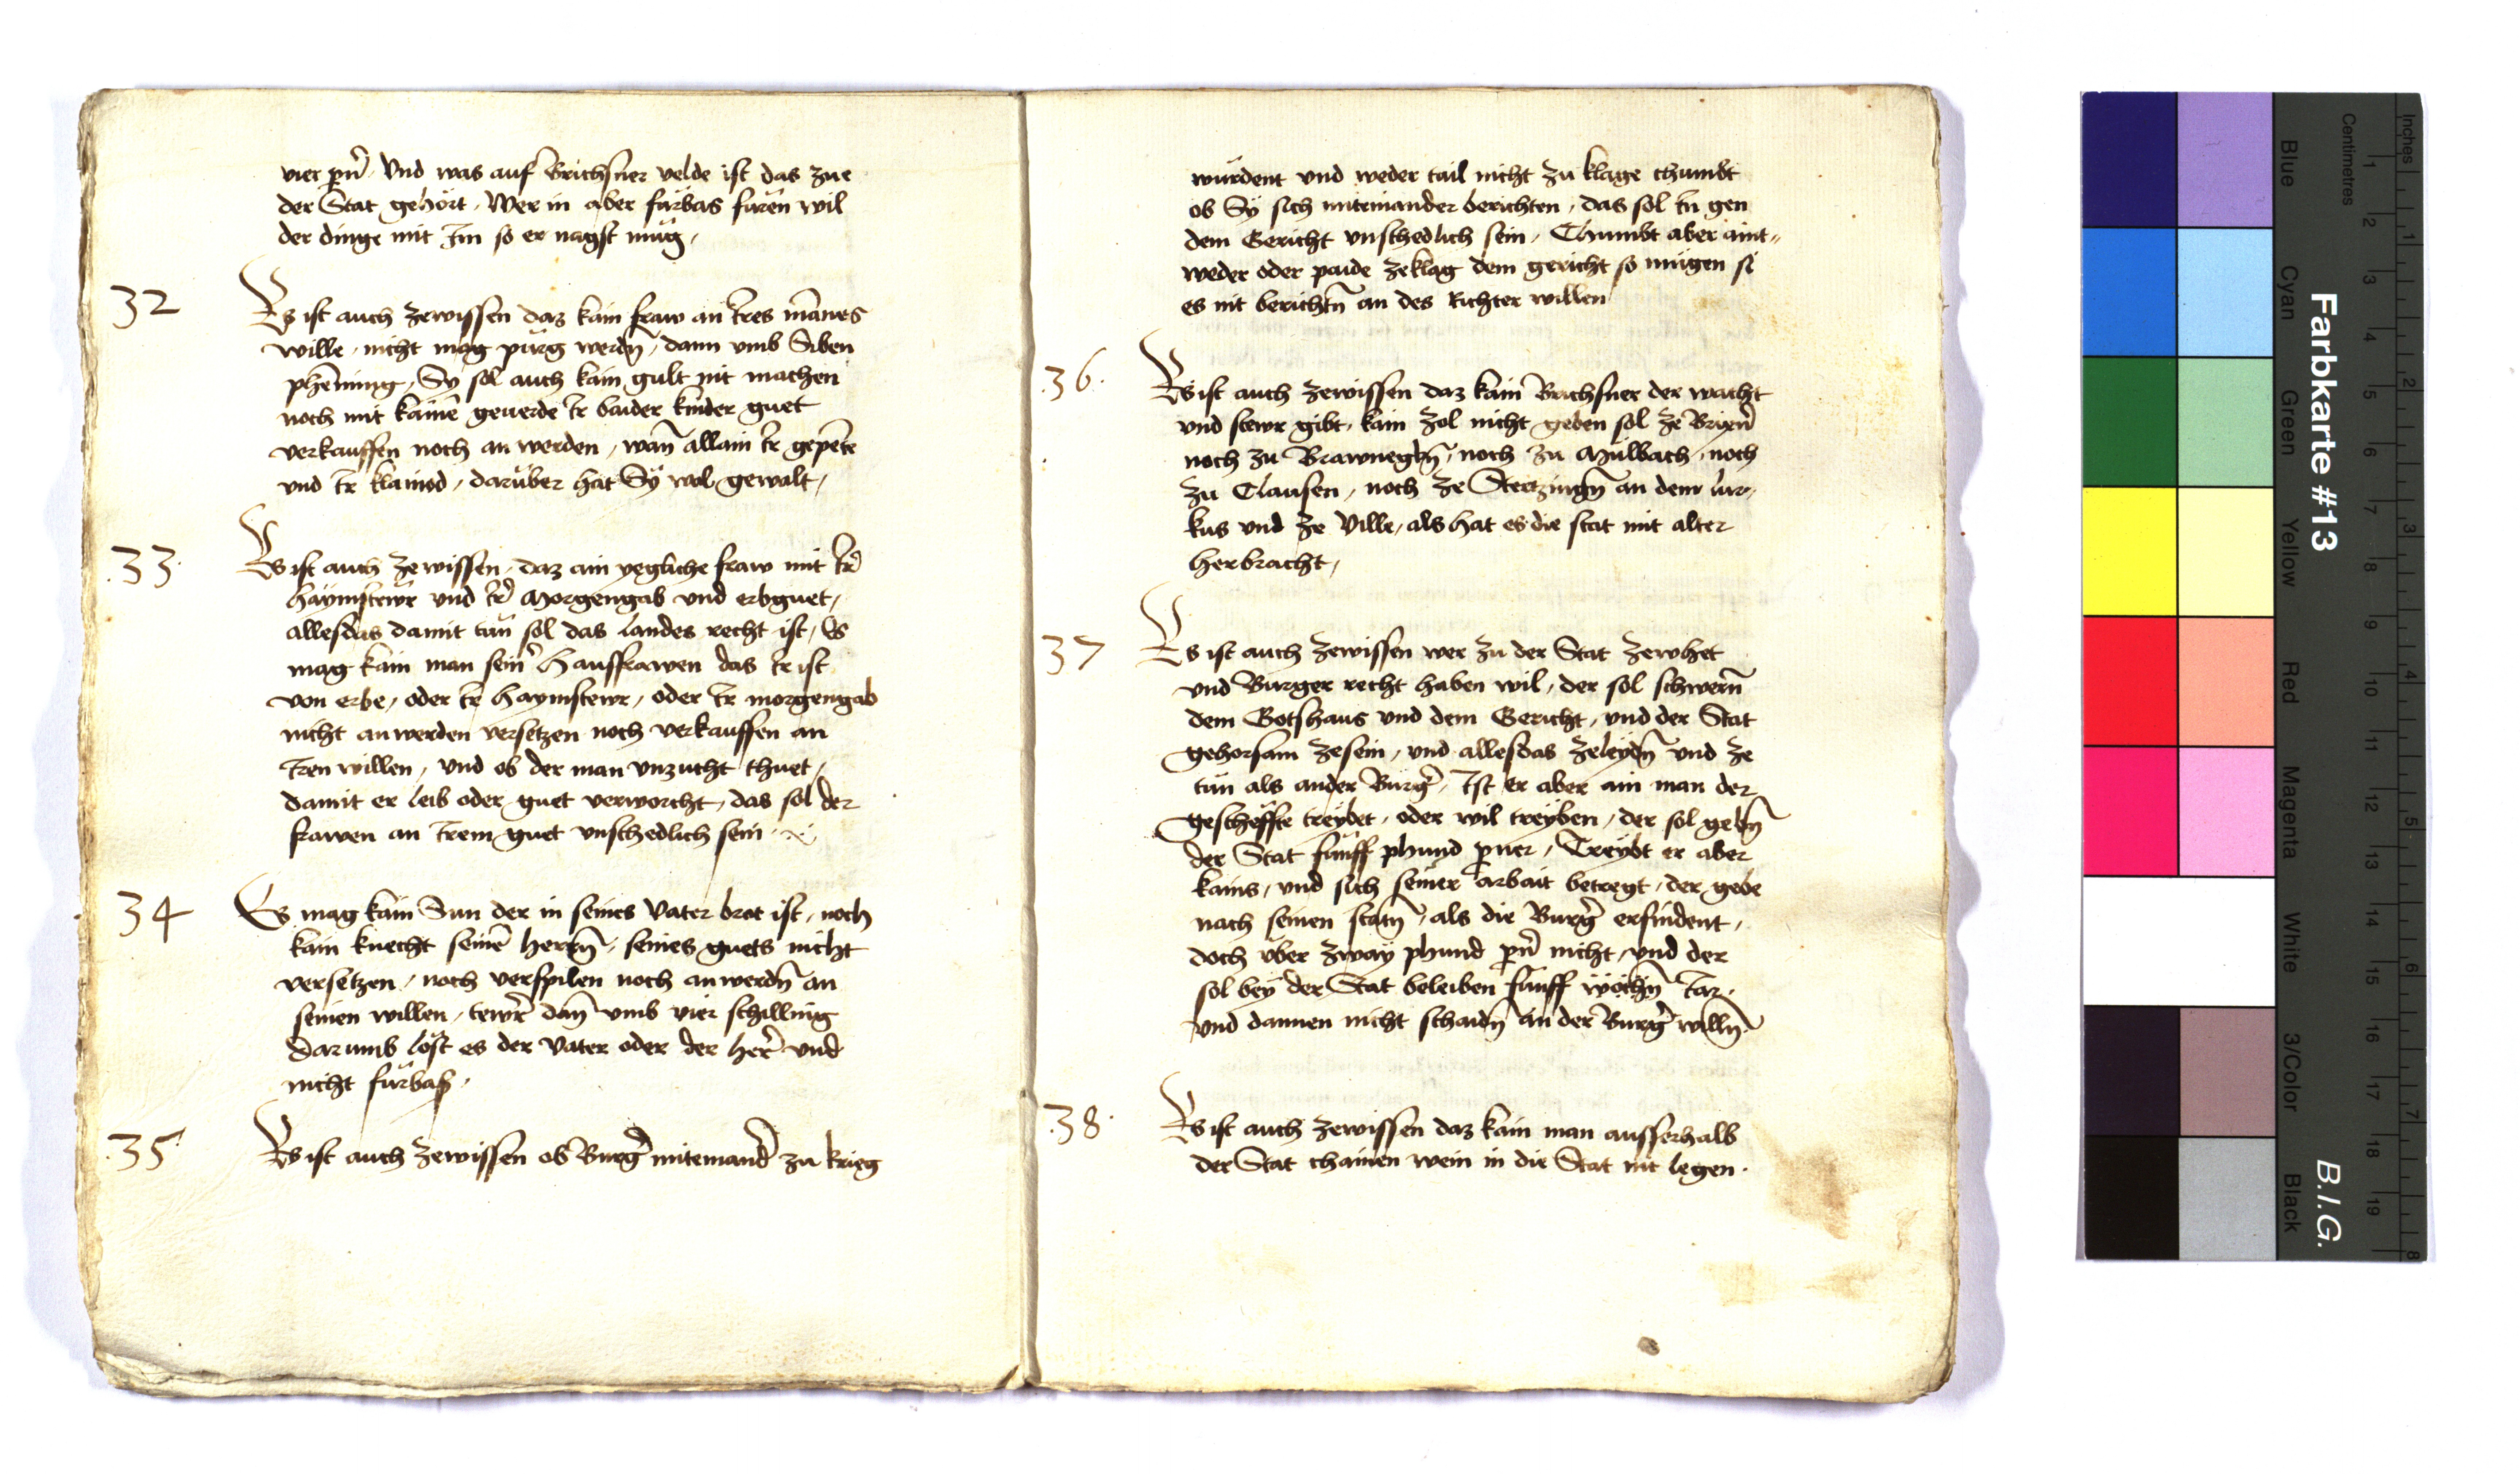 vier pn̄ Vnd was auf Brichsner velde ist das zue
der Stat gehört, Wer in aber fürbas füren wil
der dinge mit Im so er nagst müg,
32
Es ist auch zewissen daz kain fraw an Ires mānes
wille, nicht mag pürg werdn̄, dann vmb Siben
phēning, Sy sol auch kain gult nit machen
noch mit kainē geuerde Ir baider kinder guet
verkauffen noch an werden, wan̄ allain Ir gepēte
vnd Ir klainod, darüber hat Sÿ wol gewalt,
.33.
Es ist auch zewissen, daz ain yegliche fraw mit Ir̄
haÿmstewr vnd Ir̄ Morgengab vnd erbguet,
allesdas damit tün sol das landes recht ist, Es
mag kain man sein̄ hausfrawen das Ir ist
von erbe, oder Ir haymstewr, oder Ir morgengab
nicht anwerden versetzen noch verkauffen an
Iren willen, vnd ob der man vnzucht thuet,
damit er leib oder guet verworcht, das sol der
frawen an Irem guet vnschedlich sein
34
Es mag kain Sun der in seines Vater brot ist, noch
kain knecht seinē herrn̄, seines guets nicht
versetzen, noch verspilen noch anwerdn̄ an
seinen willen, tewr̄ dan̄ vmb vier schilling
Darumb löst es der Vater oder der her̄ vnd
nicht fürbaß.
.35.
Es ist auch zewissen ob Burḡ miteinand̄ zu krieg
würdent vnd weder tail nicht zu klage chumbt
ob Sÿ sich miteinander berichten, das sol In gen
dem Gericht vnschedlich sein, Chumbt aber aint„
weder oder paide zeklag dem gericht so mügen si
es nit berichtn̄ an des Richter willen
.36.
Es ist auch zewissen daz kain Brichsner der wacht
vnd stewr gibt, kain zol nicht geben sol ze Brixn̄
noch zu Brawnegkn̄, noch zu Mülbach, noch
zu Clausen, noch ze Stertzingn̄ an dem lur„
kus vnd ze Ville, als hat es die stat mit alter
herbracht,
37
Es ist auch zewissen wer zu der Stat zewhet
vnd Burger recht haben wil, der sol schwern̄
dem Gotshaus vnd dem Gericht, vnd der Stat
gehorsam zesein, vnd allesdas zeleÿdn̄ vnd ze
tün als ander Bürḡ, Ist er aber ain man der
gescheffte treÿbet, oder wil treÿben, der sol gebn̄
der Stat fünff phund perner, Treÿbt er aber
kains, vnd sich seiner arbait betregt, der gebe
nach seinen statn̄, als die Burḡ erfindent,
doch vber zwaÿ phund pn̄ nicht, vnd der
sol beÿ der Stat beleiben fünff wochn̄ Iar,
vnd dannen nicht schaidn̄ an der Burḡ willn̄.
.38.
Es ist auch zewissen daz kain man ausserhalb
der Stat chainen wein in die Stat nit legen.
Farbkarte #13
B.I.G.
Inches
Centimetres
Blue
Cyan
Green
Yellow
Red
Magenta
White
3/Color
Black
1
2
3
4
5
6
7
8
9
10
11
12
13
14
15
16
17
18
19
1
2
3
4
5
6
7
8